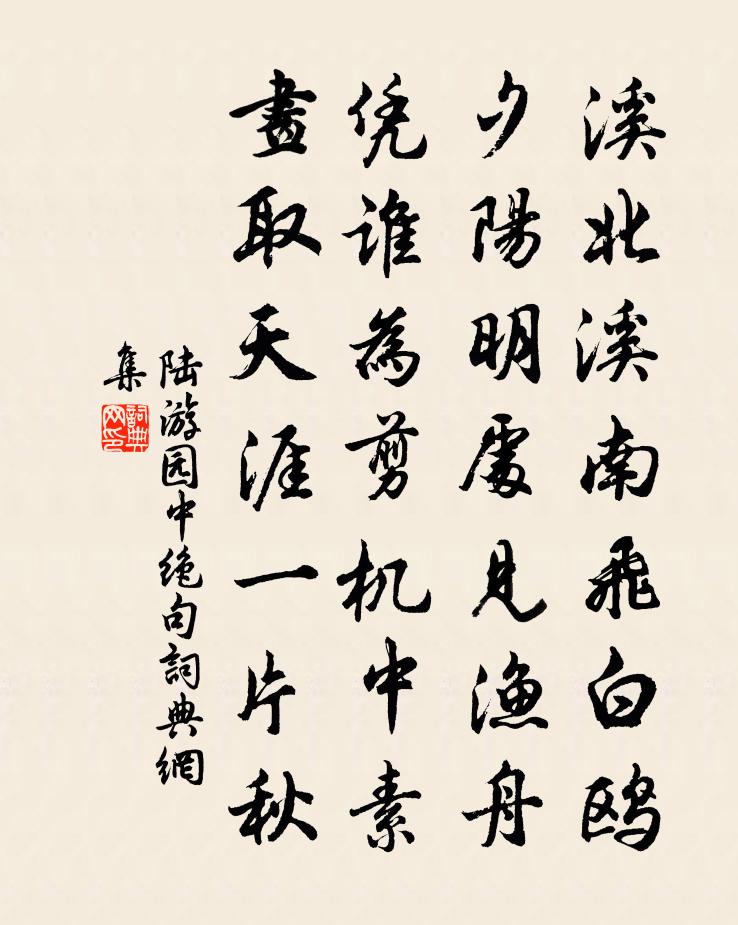 溪北溪南飛白鸥
夕陽明處見漁舟
凭谁為剪机中素
畫取天涯一片秋
陆游园中绝句詞典網
集
詞典
网印